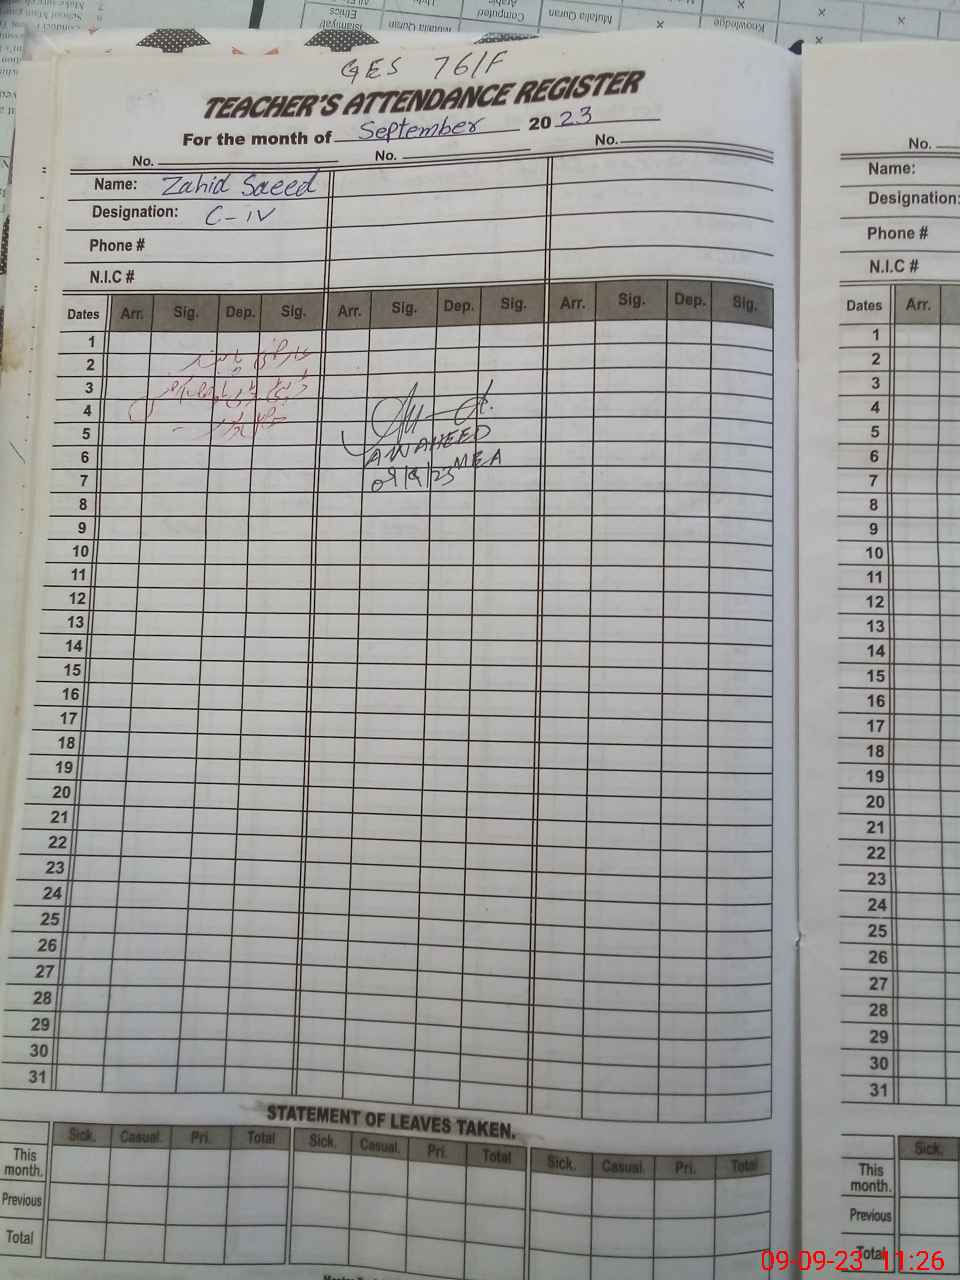 GES 76/F
TEACHER'S ATTENDANCE REGISTER
For the month of September 2023
No. No. No.
Name: Zahid Saeed
Designation: C-IV
Phone #
N.I.C #
Dates Arr. Sig. Dep. Sig. Arr. Sig. Dep. Sig. Arr. Sig. Dep. Sig.
1
2
3
4
5
6
7
8
9
10
11
12
13
14
15
16
17
18
19
20
21
22
23
24
25
26
27
28
29
30
31
AWAHEED
MEA
STATEMENT OF LEAVES TAKEN.
Sick. Casual. Pri. Total Sick. Casual. Pri. Total Sick. Casual. Pri. Total
This month.
Previous
Total
No.
Name:
Designation:
Phone #
N.I.C #
Dates Arr.
1
2
3
4
5
6
7
8
9
10
11
12
13
14
15
16
17
18
19
20
21
22
23
24
25
26
27
28
29
30
31
Sick.
This month.
Previous
Total
Islamiyat
Ethics
Mutalia Quran
Computer
Arabic
Mutalia Quran
Knowledge
09-09-23 11:26